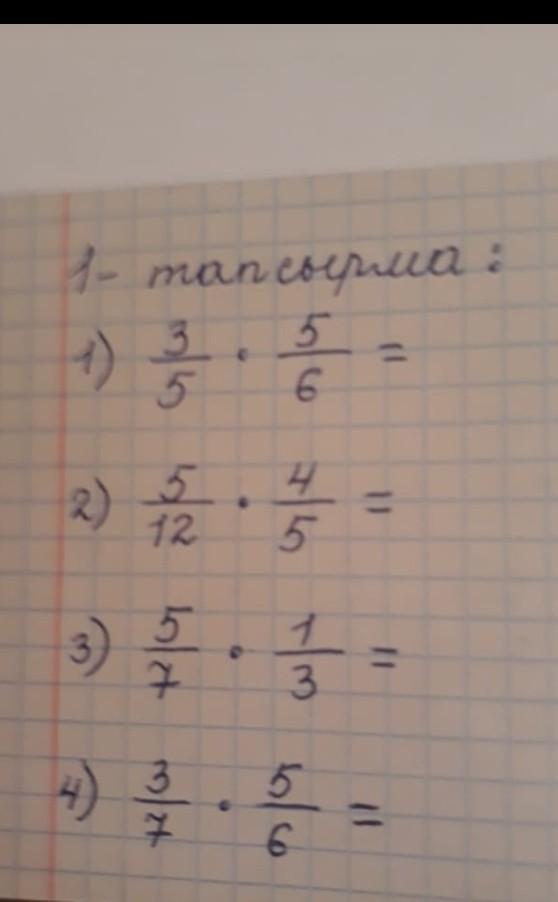 1- тапсырма:
1) 3/5 · 5/6 =
2) 5/12 · 4/5 =
3) 5/7 · 1/3 =
4) 3/7 · 5/6 =